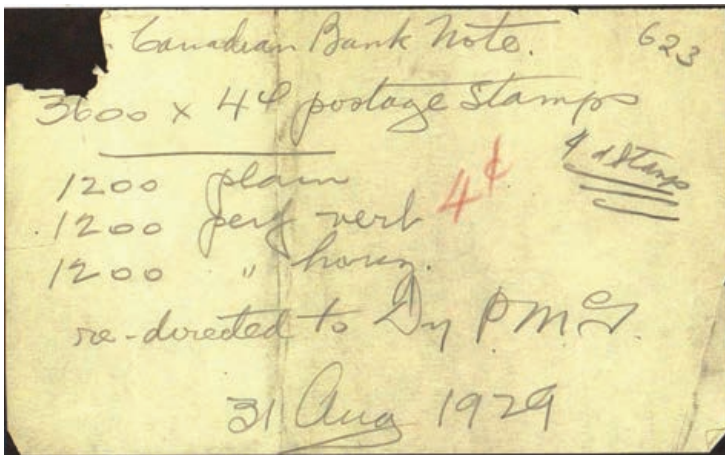 Canadian Bank Note. 623
3600 x 4¢ postage stamps
4¢ stamps
1200 plain
1200 perf vert 4¢
1200 " horiz.
re-directed to Dy P.M.G.
31 Aug 1929